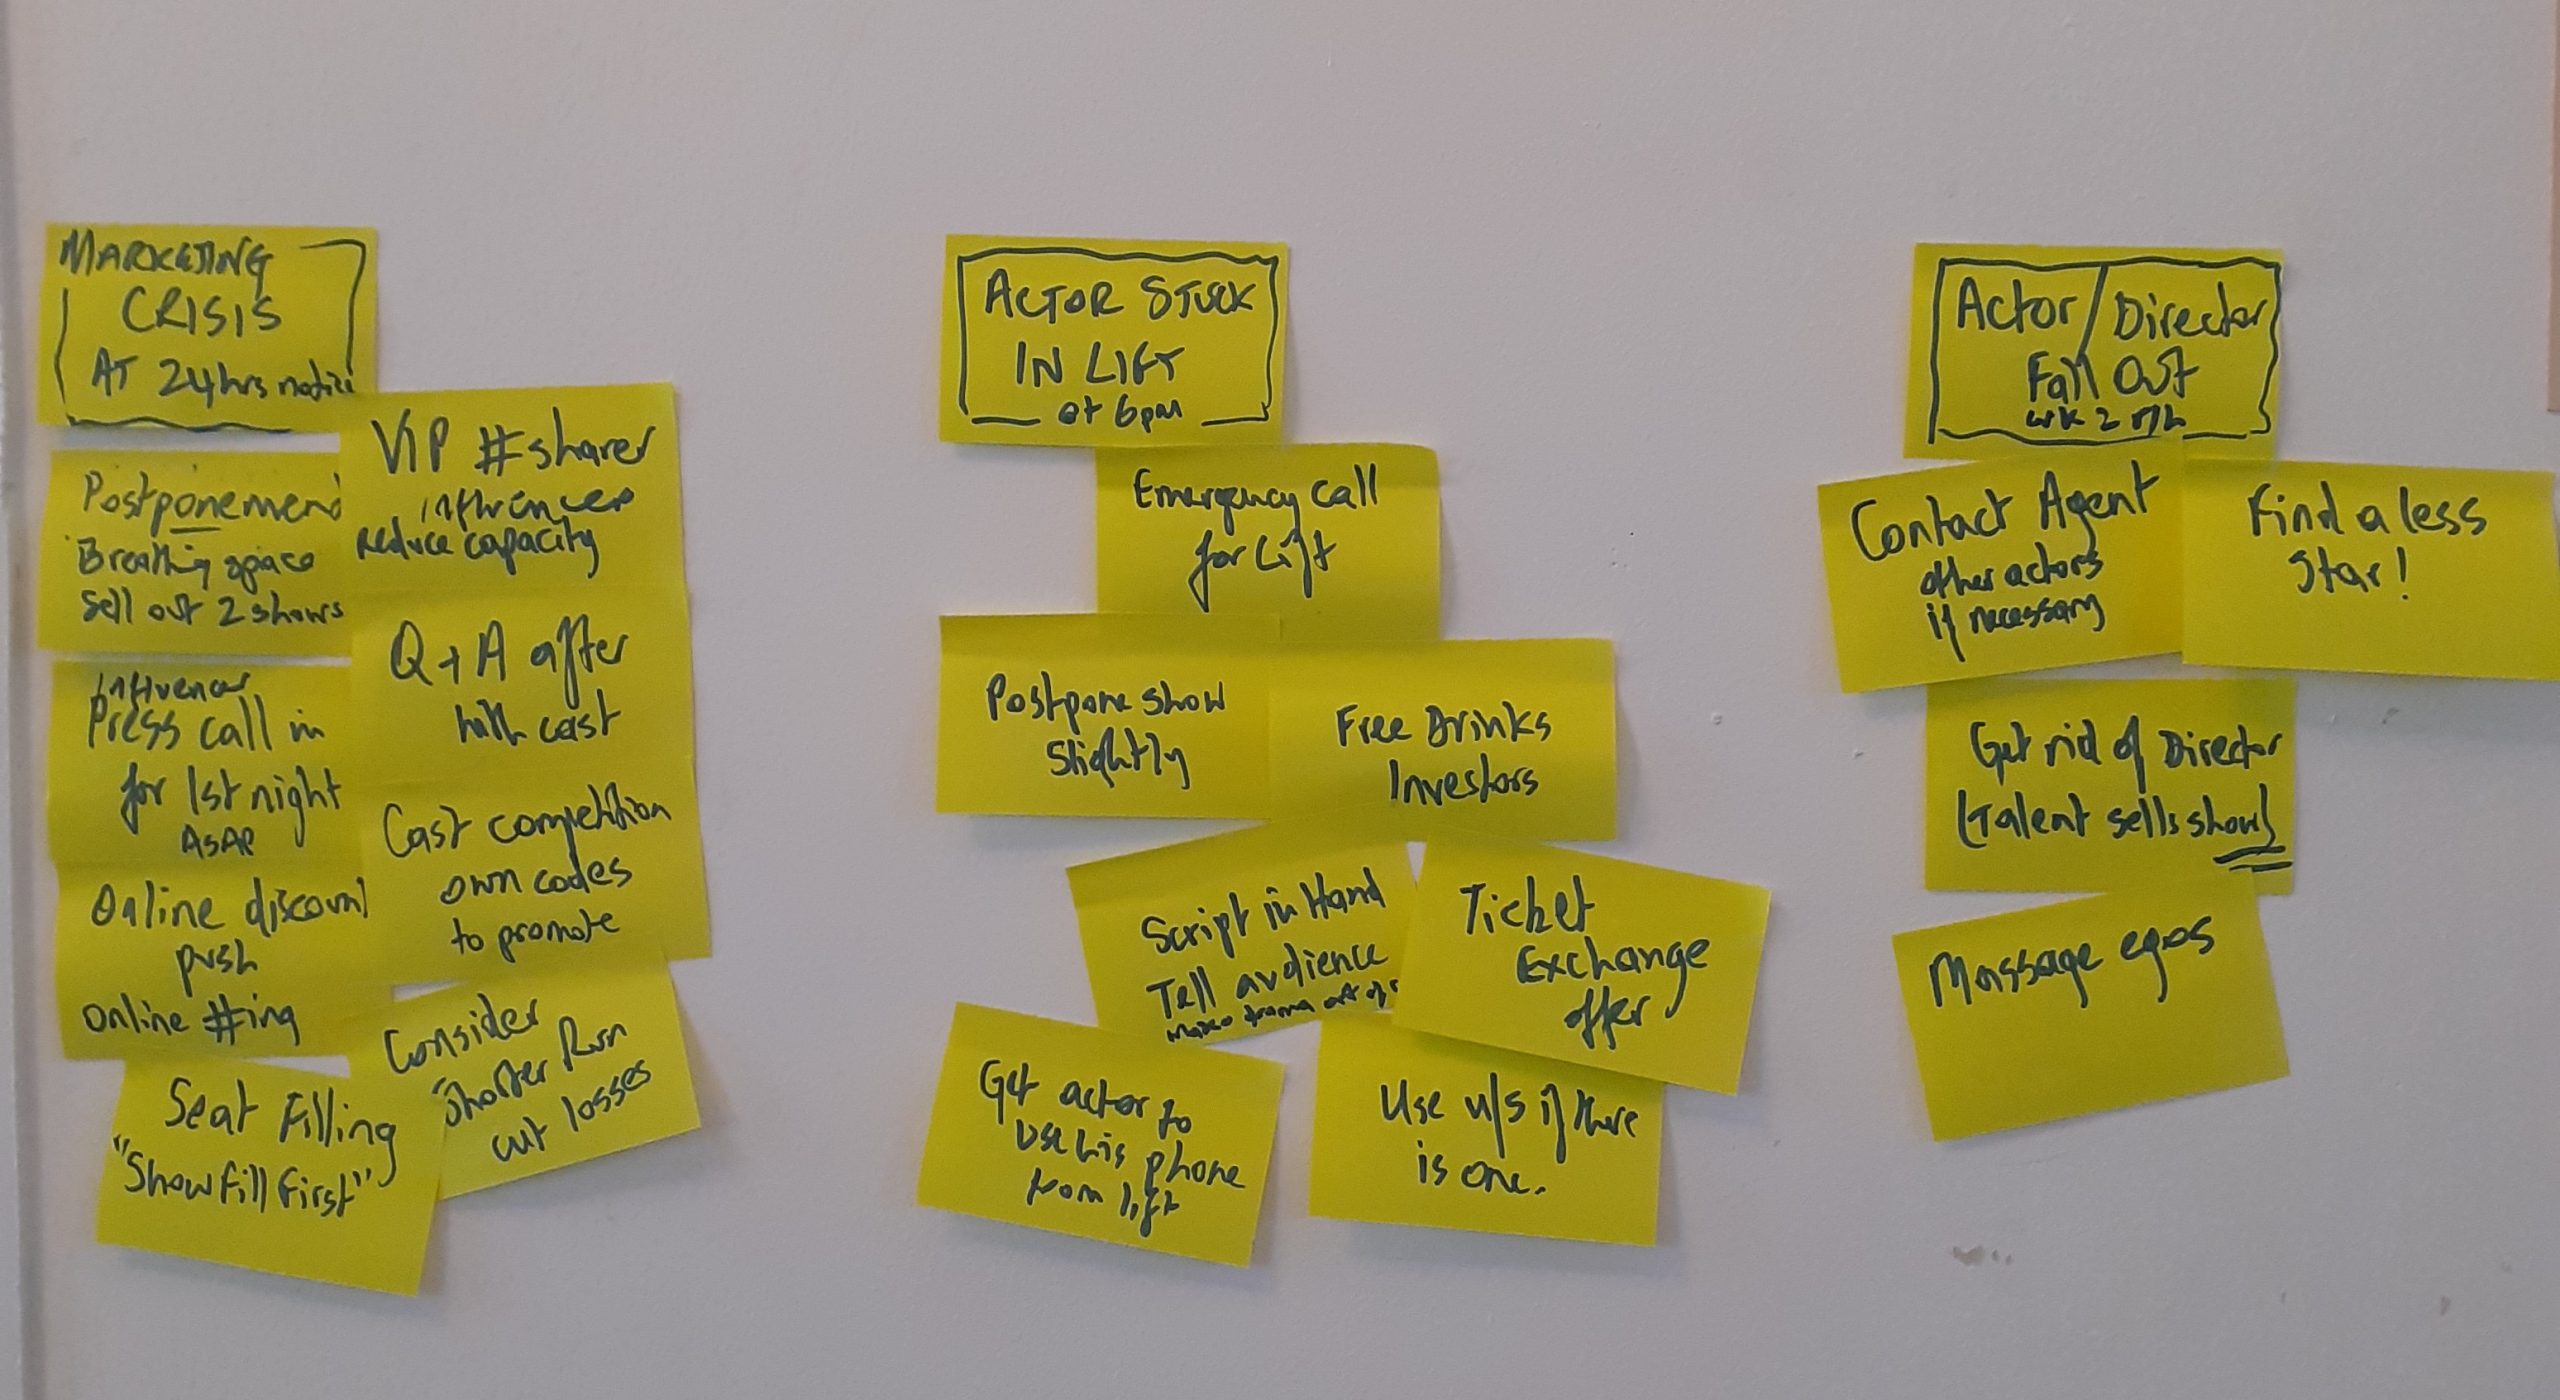 MARKETING
CRISIS
AT 24hrs notice
Postponement
Breathing space
Sell out 2 shows
Influencer
Press call in
for 1st night
ASAP
Online discount
push
Online #ing
Seat Filling
"Show fill first"
VIP #sharer
influencer
reduce capacity
Q + A after
with cast
Cast competition
own codes
to promote
Consider
Shorter Run
cut losses
ACTOR STUCK
IN LIFT
at 6pm
Emergency call
for Lift
Postpone show
slightly
Free Drinks
Investors
Script in Hand
Tell audience
make drama out of
Ticket
Exchange
offer
Get actor to
use his phone
from lift
Use u/s if there
is one.
Actor/Director
Fall Out
wk 2
Contact Agent
other actors
if necessary
Find a less
Star!
Get rid of Director
(Talent sells show)
Massage egos